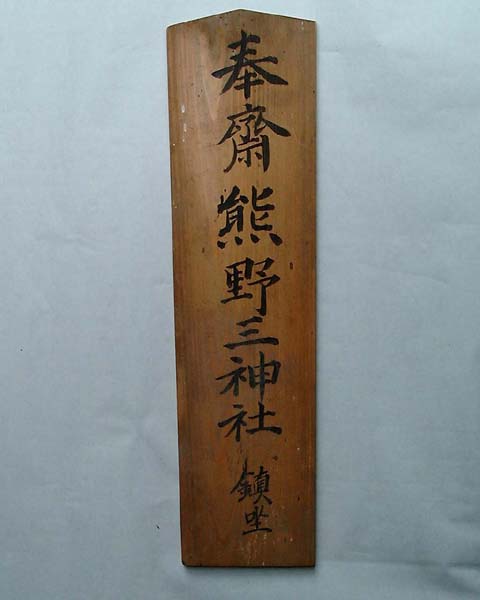 奉齋熊野三神社鎮坐